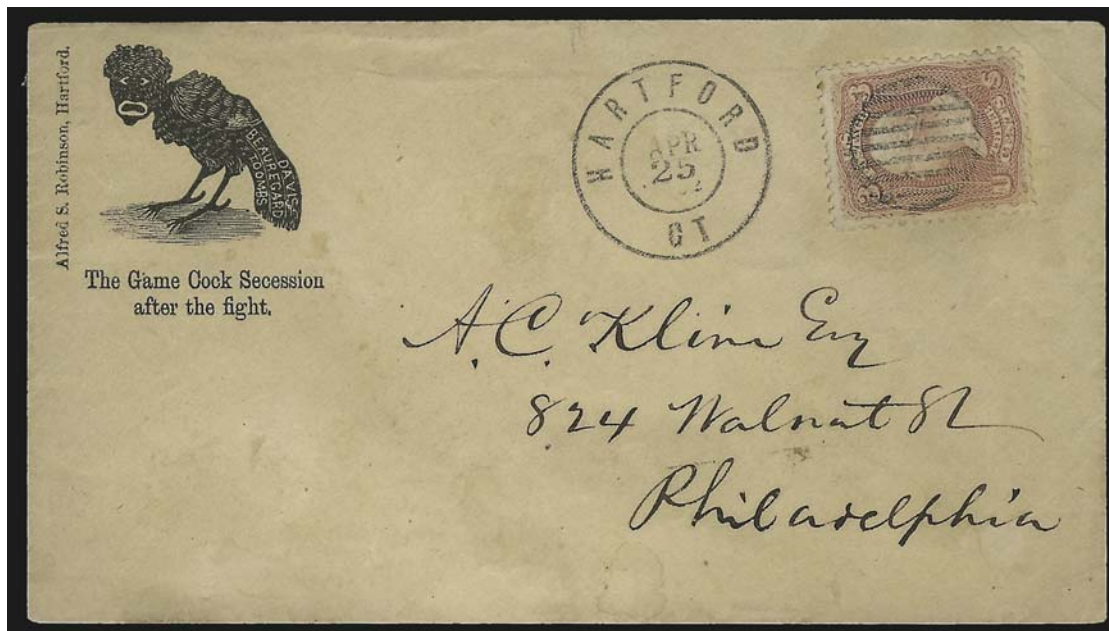 Alfred S. Robinson, Hartford.
DAVIS
BEAUREGARD
TOOMBS
The Game Cock Secession
after the fight.
HARTFORD
APR
25
CT
A. C. Kline Esq
824 Walnut St
Philadelphia